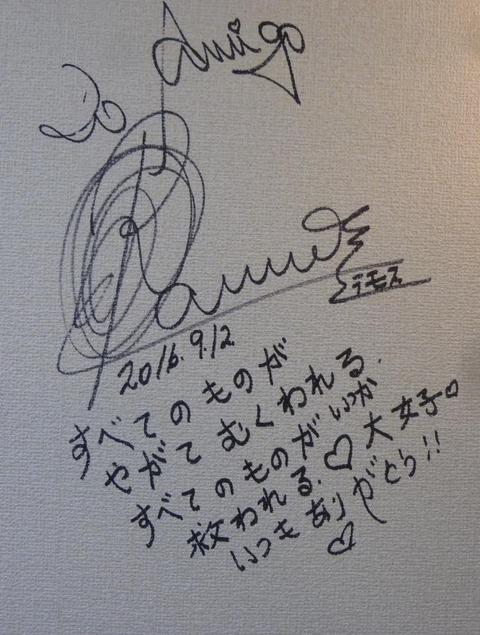 Amigo
デモス
2016.9.12
すべてのものが
やがて むくわれる.
すべてのものがいつか
救われる.♡大女子。
いつもありがとう!!
♡